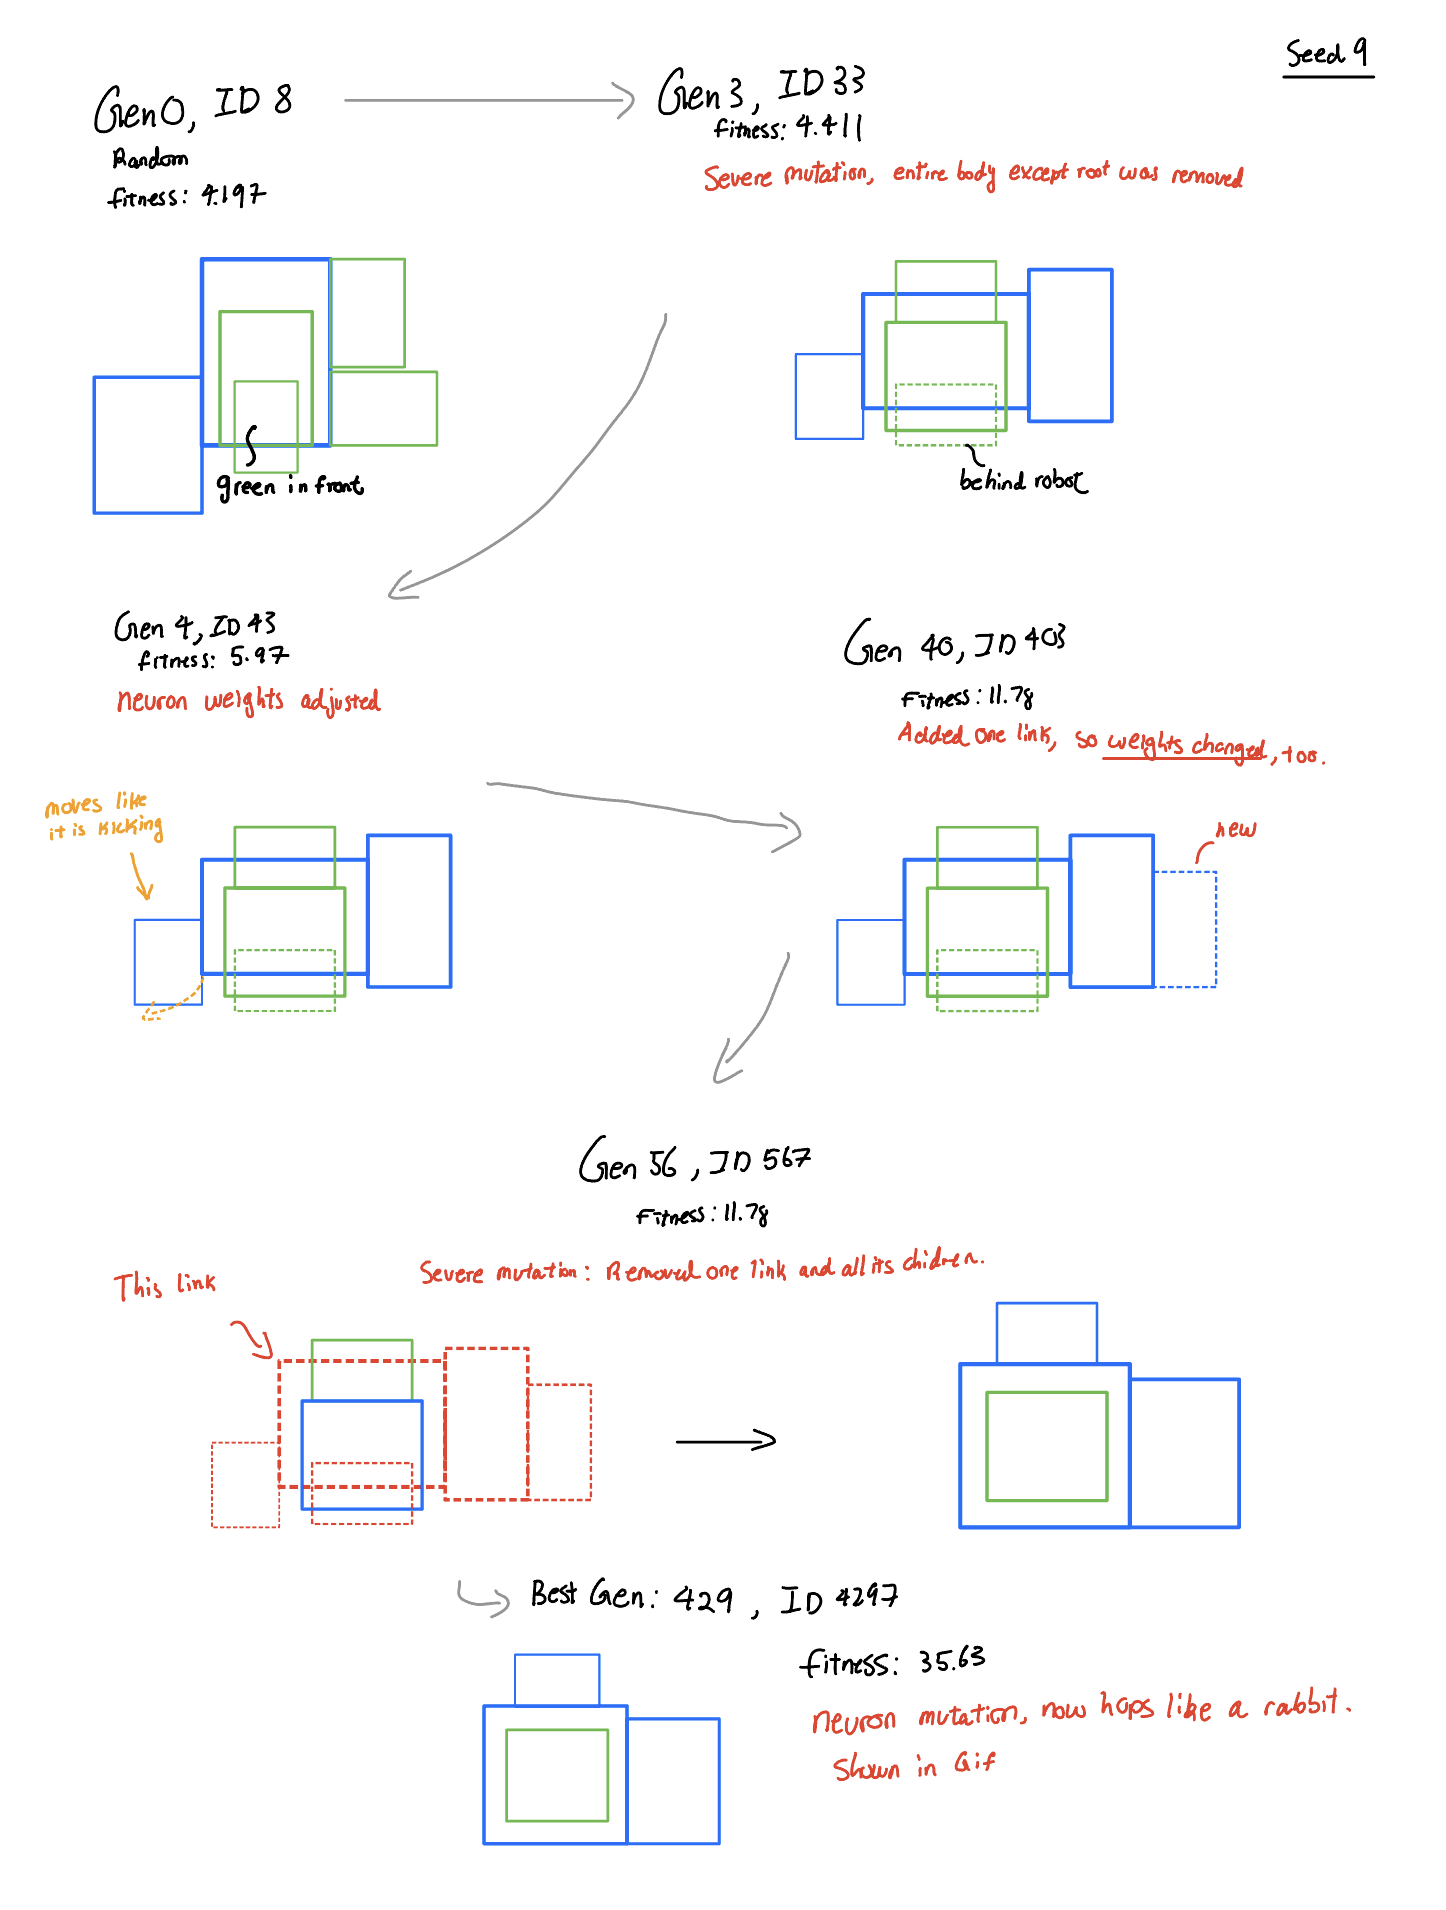 Seed 9
Gen 0, ID 8
Random
fitness: 4.197
Gen 3, ID 33
fitness: 4.411
Severe mutation, entire body except root was removed
green in front
behind robot
Gen 4, ID 43
fitness: 5.97
neuron weights adjusted
moves like
it is kicking
Gen 40, ID 403
Fitness: 11.78
Added one link, so weights changed, too.
new
Gen 56, ID 567
Fitness: 11.78
Severe mutation: Removed one link and all its children.
This link
Best Gen: 429, ID 4297
fitness: 35.63
neuron mutation, now hops like a rabbit.
Shown in Gif